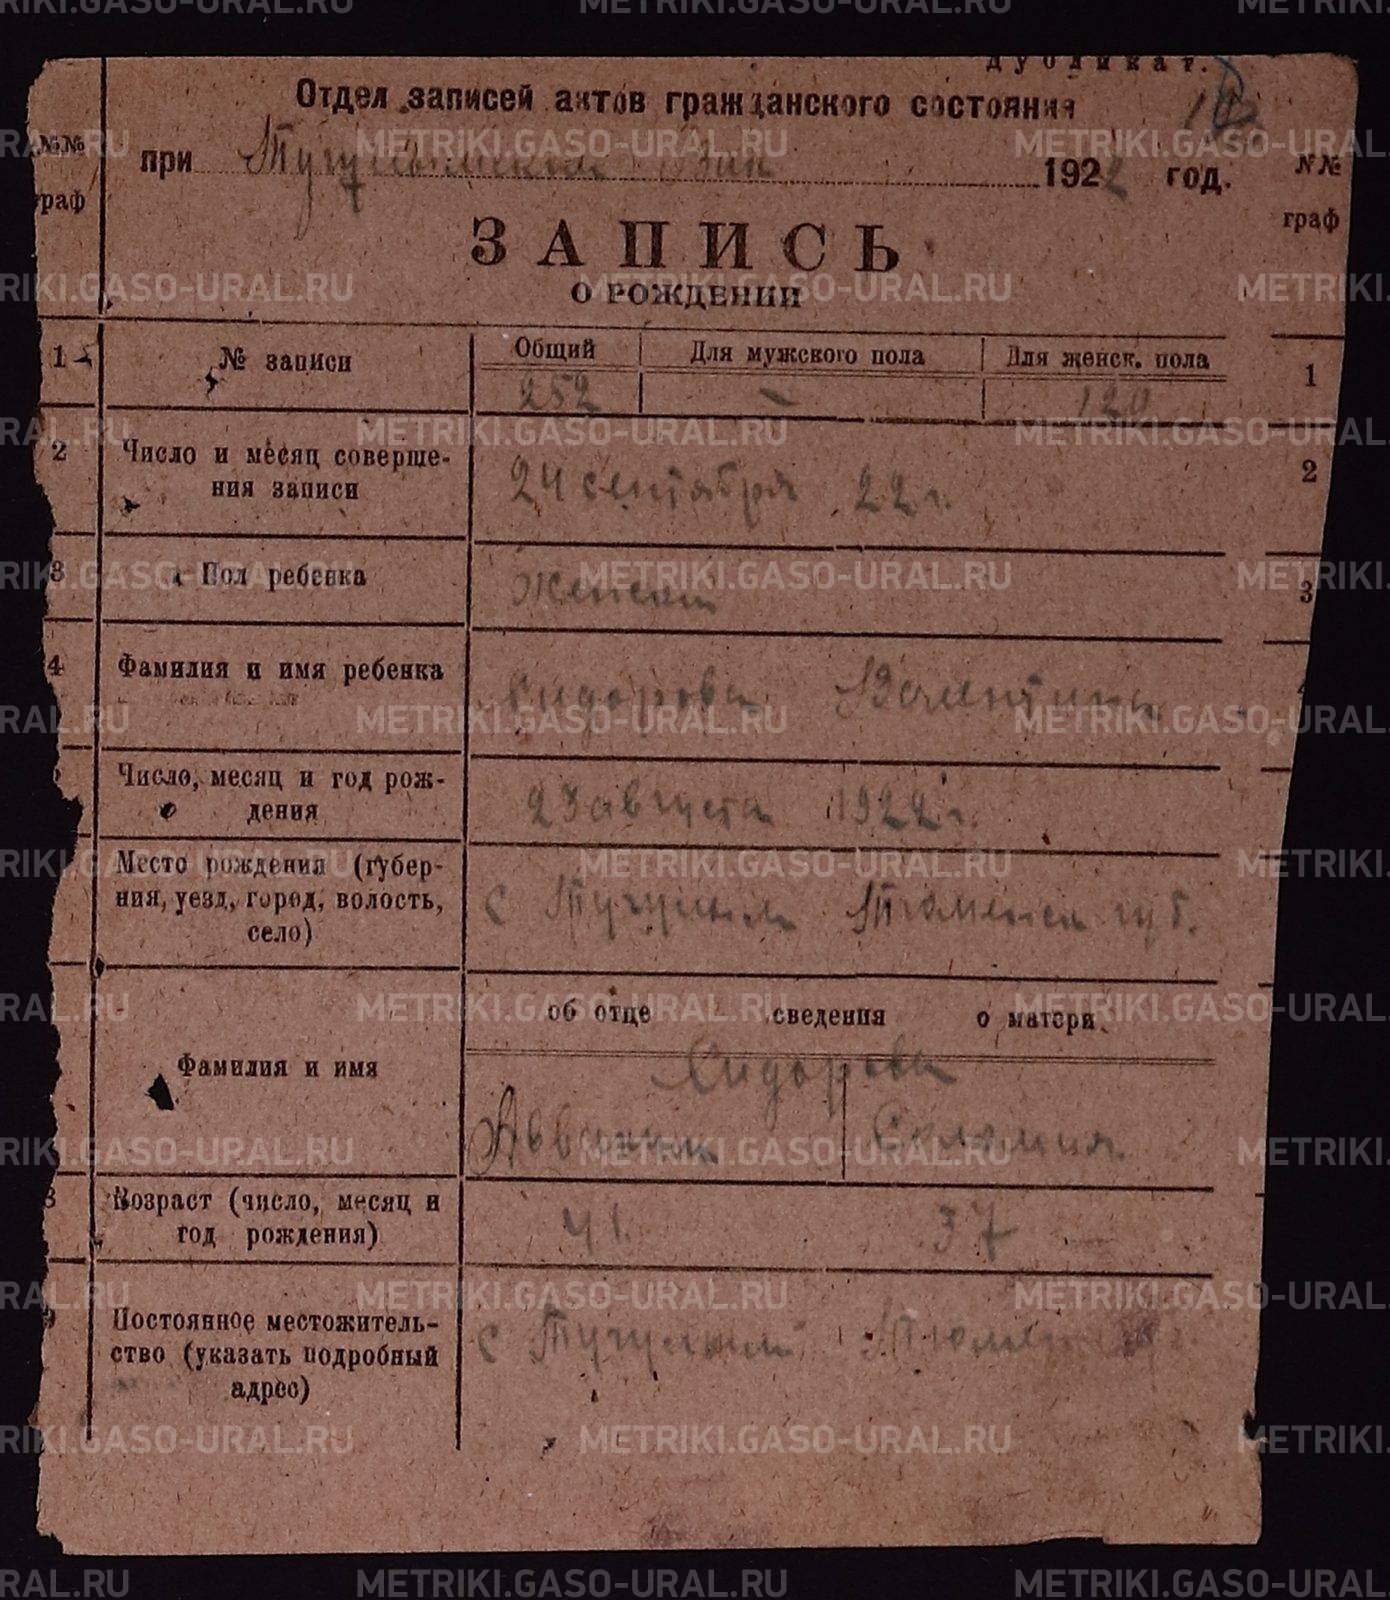 дубликат.
Отдел записей актов гражданского состояния
при Тугулымском 1922 год.
№№ граф
№№ граф
ЗАПИСЬ
О РОЖДЕНИИ
1 № записи Общий Для мужского пола Для женск. пола 1
252 —
2 Число и месяц соверше-
ния записи 24 сентября 22 г. 2
3 Пол ребенка Женский 3
4 Фамилия и имя ребенка Сидорова Валентина
Число, месяц и год рож-
дения 23 августа 1922 г.
Место рождения (губер-
ния, уезд, город, волость, с Тугулым Тюменск губ.
село)
об отце сведения о матери
Фамилия и имя Сидоровы
Аввакум Соломия
8 Возраст (число, месяц и
год рождения) 41 37
9 Постоянное местожитель-
ство (указать подробный с Тугулым
адрес)
METRIKI.GASO-URAL.RU